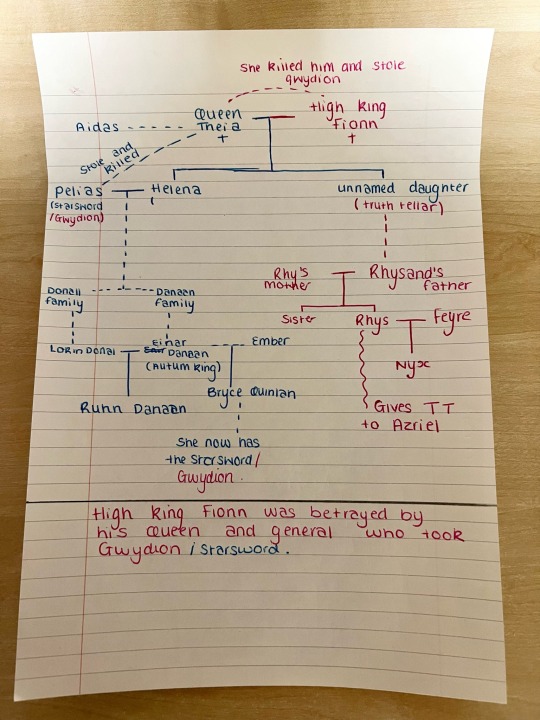 She killed him and stole
gwydion
Queen
Theia
+
High king
Fionn
+
Aidas
Stole and
killed
Pelias
(starsword
/Gwydion)
Helena
unnamed daughter
(truth tellar)
Rhy's
mother
Rhysand's
father
Donall
family
Danaan
family
Sister
Rhys
Feyre
Lorin Donal
Einar
Danaan
(Autum King)
Ember
Nyx
Ruhn Danaan
Bryce Quinlan
Gives TT
to Azriel
She now has
the Starsword/
Gwydion.
High King Fionn was betrayed by
his Queen and general who took
Gwydion / Starsword.